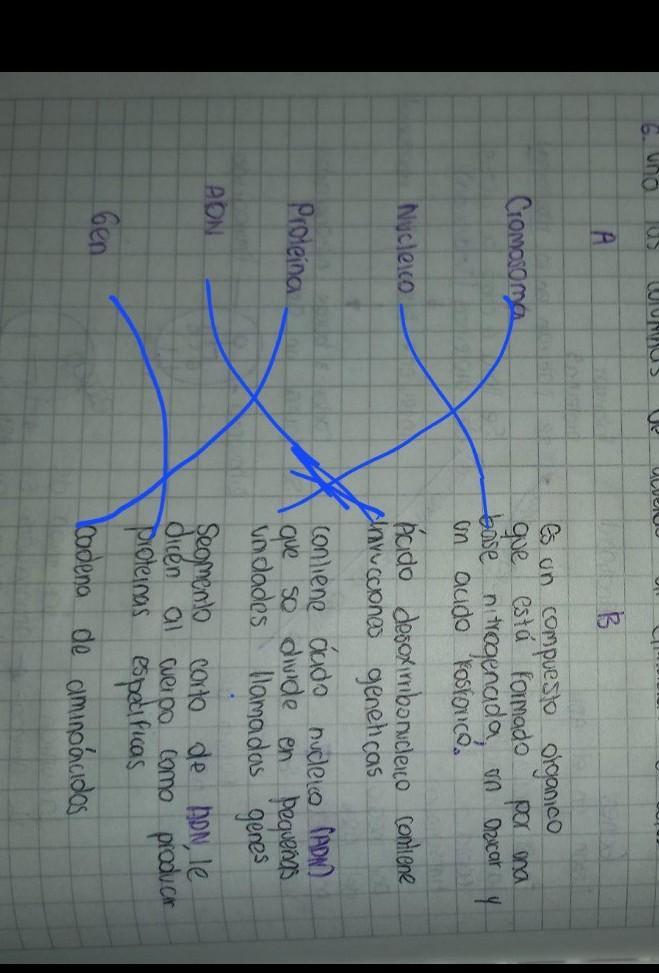 6. Una las columnas de acuerdo
A
B
Cromosoma
Nucleico
Proteína
ADN
Gen
Es un compuesto organico
que está formado por una
base nitrogenada, un azucar y
un acido fosforico.
Ácido desoxirribonucleico contiene
genéticas
contiene ácido nucleico (ADN)
que se divide en pequeñas
unidades llamadas genes
Segmento corto de ADN, le
dicen al cuerpo como producir
proteinas específicas
Cadena de aminoácidos